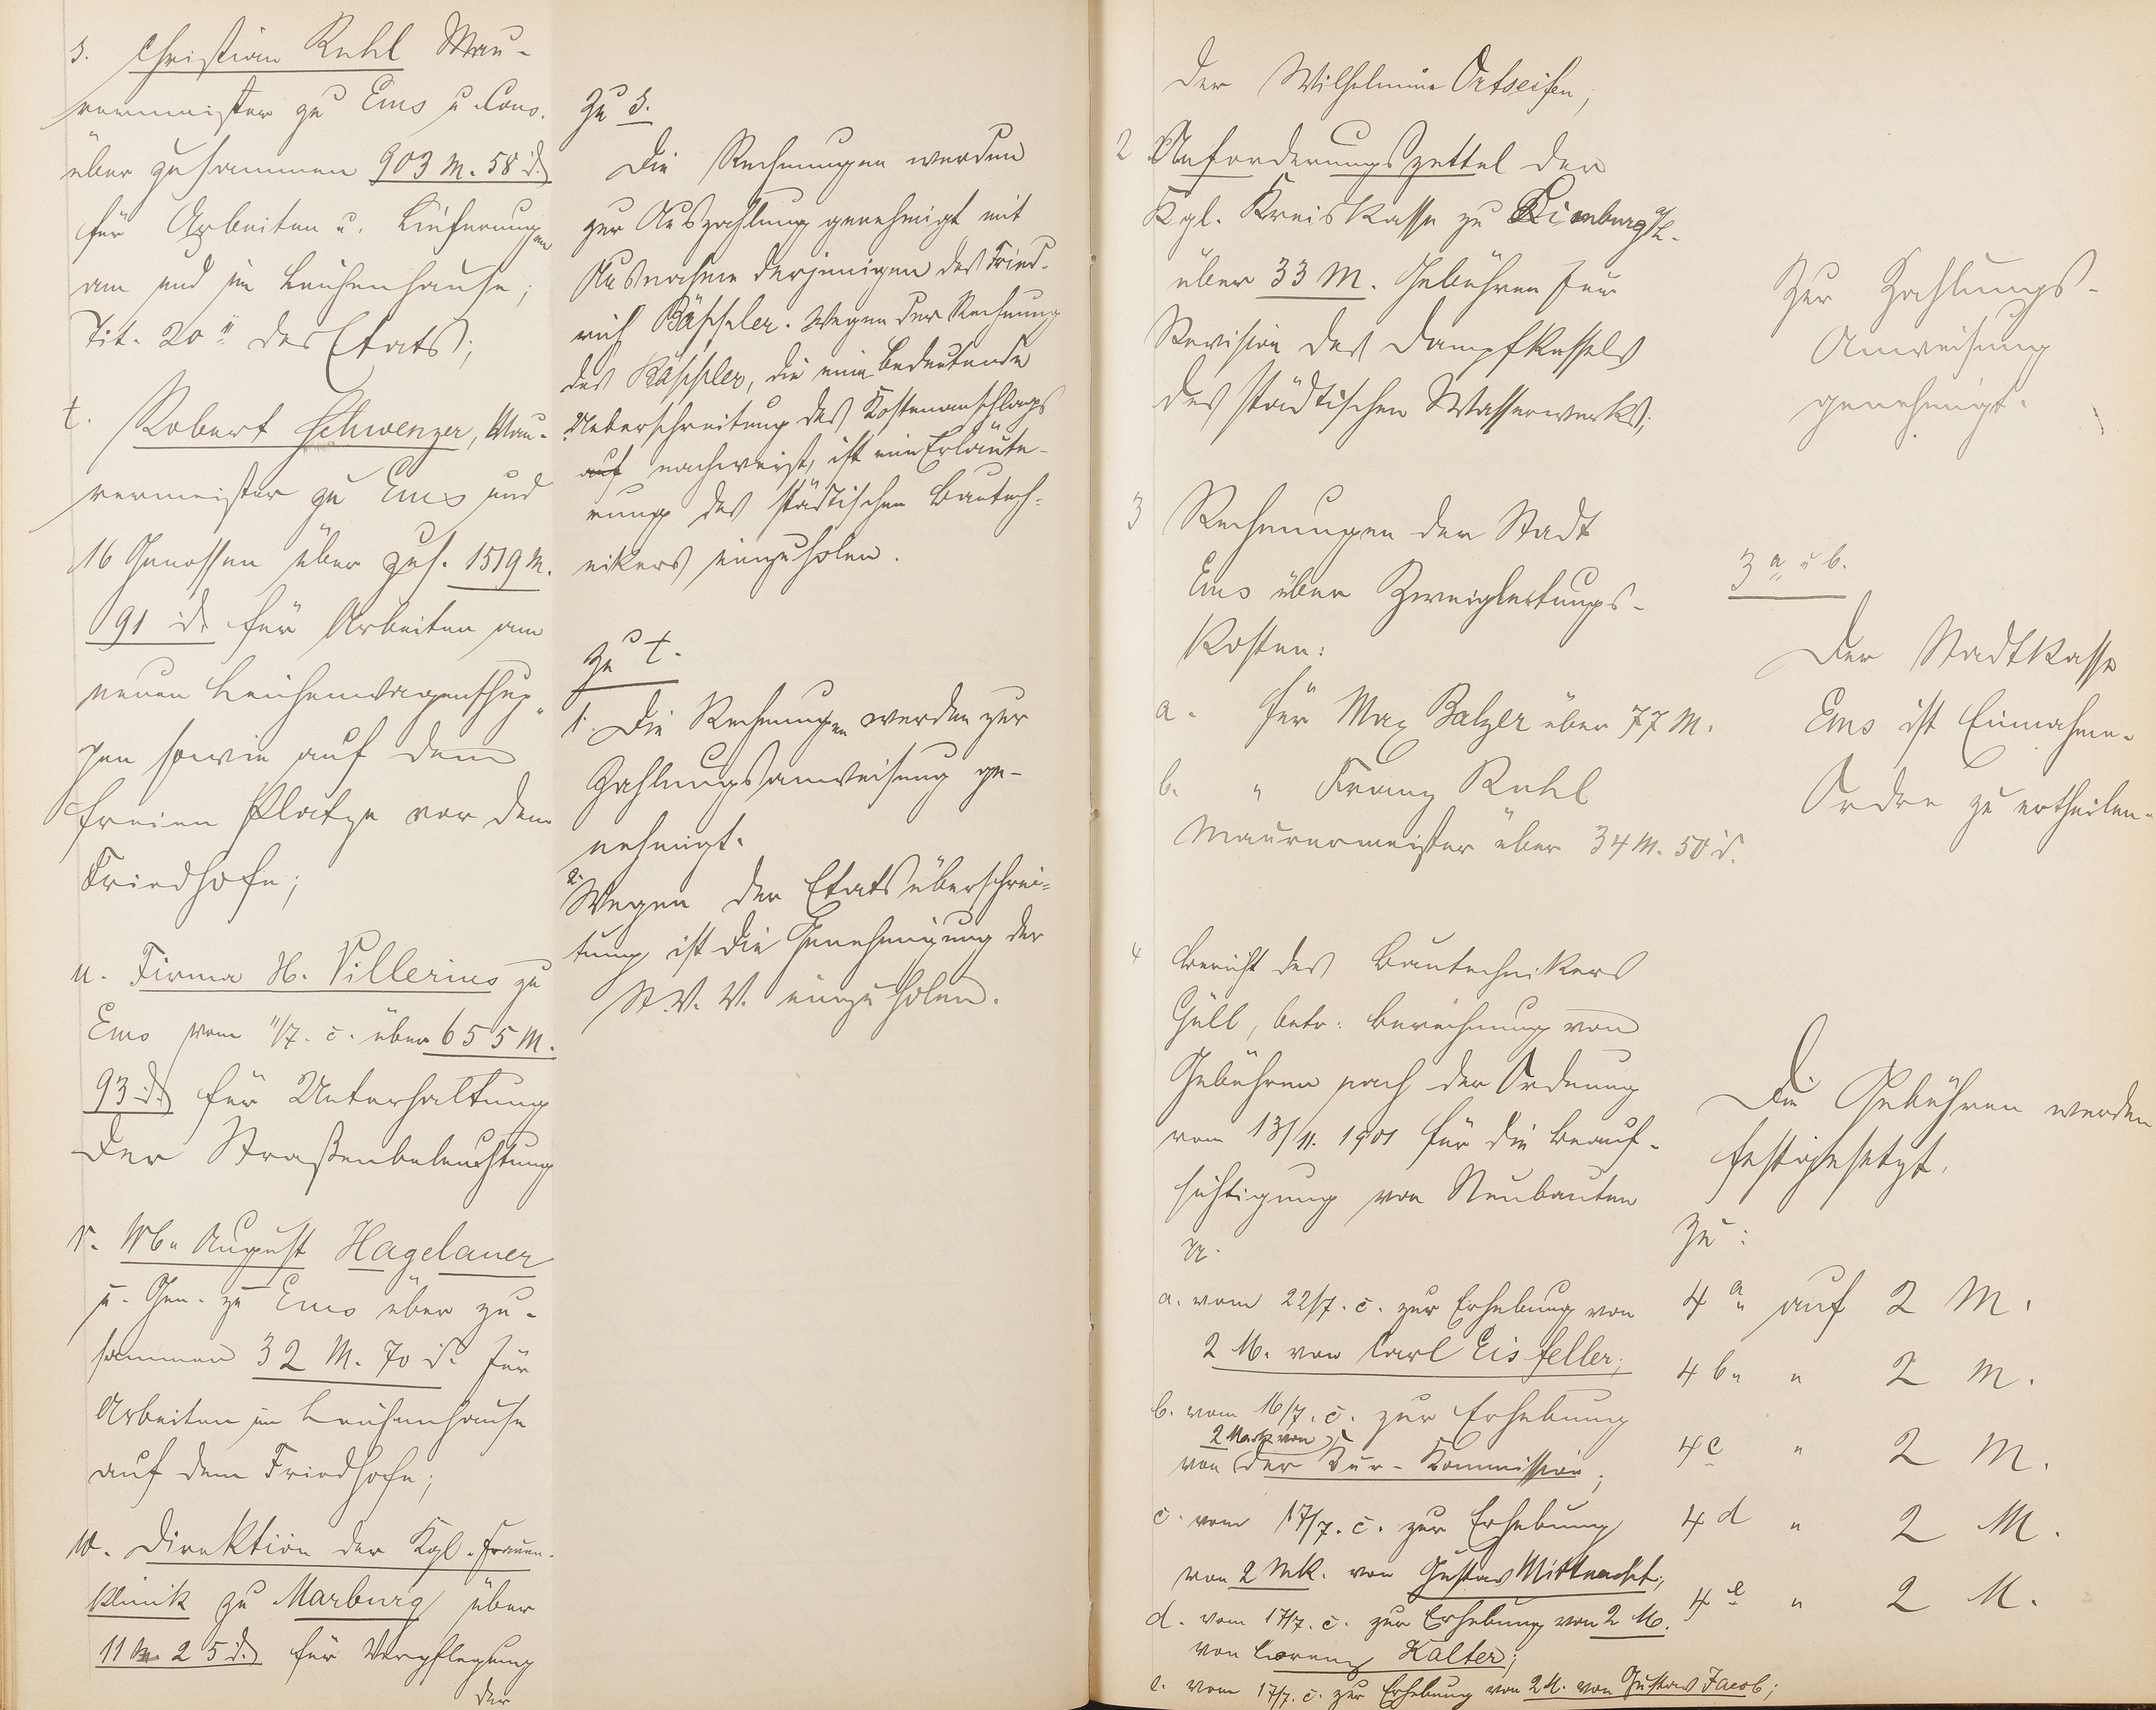 s. Christian Ruhl Mau-
rermeister zu Ems u. Cons.
über zusammen 903 M. 58 d.
für Arbeiten u. Lieferungen
am und im Leichenhause,
Tit. 20 II des Etats;
t. Robert Schwenzer, Mau-
rermeister zu Ems und
16 Genossen über zus. 1519 M.
91 d. für Arbeiten am
neuen Leichenwagenschup-
pen sowie auf dem
freien Platze vor dem
Friedhofe;
u. Firma H. Villerius zu
Ems vom 11/7. c. über 655 M.
93 d. für Unterhaltung
der Straßenbeleuchtung
v. Ww. August Hagelauer
u. Gen. zu Ems über zu-
sammen 32 M. 70 d. für
Arbeiten im Leichenhause
auf dem Friedhofe;
w. Direktion der Kgl. Frauen-
klinik zu Marburg über
11 M 25 d. für Verpflegung
der
Zu s.
Die Rechnungen werden
zur Auszahlung genehmigt mit
Ausnahme derjenigen des Fried-
rich Bäppler. Wegen der Rechnung
des Bäppler, die eine bedeutende
Ueberschreitung des Kostenanschlags
auf nachweist, ist eine Erläute-
rung des städtischen Bautech-
nikers einzuholen.
Zu t.
1. Die Rechnungen werden zur
Zahlungsanweisung ge-
nehmigt.
2. Wegen der Etatsüberschrei-
tung ist die Genehmigung der
St. V. V. einzuholen.
der Wilhelmine Ortseifen,
2 Anforderungszettel der
Kgl. Kreiskasse zu Limburg a/L.
über 33 M. Gebühren für
Revision des Dampfkessels
des städtischen Wasserwerks;
3 Rechnungen der Stadt
Ems über Zweigleitungs-
kosten:
a. für Max Balzer über 77 M.
b. " Franz Ruhl
Maurermeister über 34 M. 50 d.
4 Bericht des Bautechnikers
Güll, betr. Berechnung von
Gebühren nach der Ordnung
vom 13/11. 1901 für die Beauf-
sichtigung von Neubauten
pp.
a. vom 22/7. c. zur Erhebung von
2 M. von Carl Eisfeller;
b. vom 16/7. c. zur Erhebung
2 Mark von
von der Kur-Kommission;
c. vom 17/7. c. zur Erhebung
von 2 Mk. von Gustav Mittnacht;
d. vom 17/7. c. zur Erhebung von 2 M.
von Lorenz Kalter;
e. vom 17/7. c. zur Erhebung von 2 M. von Gustav Jacob;
Zur Zahlungs-
Anweisung
genehmigt.
3 a u b.
Der Stadtkasse
Ems ist Einnahme-
Ordre zu ertheilen.
Die Gebühren werden
festgesetzt.
zu:
4 a " auf 2 M.
4 b " " 2 M.
4 c " 2 M.
4 d " 2 M.
4 e " 2 M.